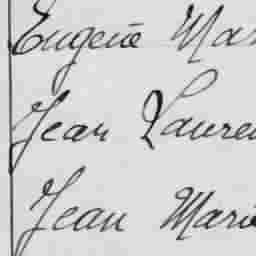 Eugène Mar
Jean Lauren
Jean Marie